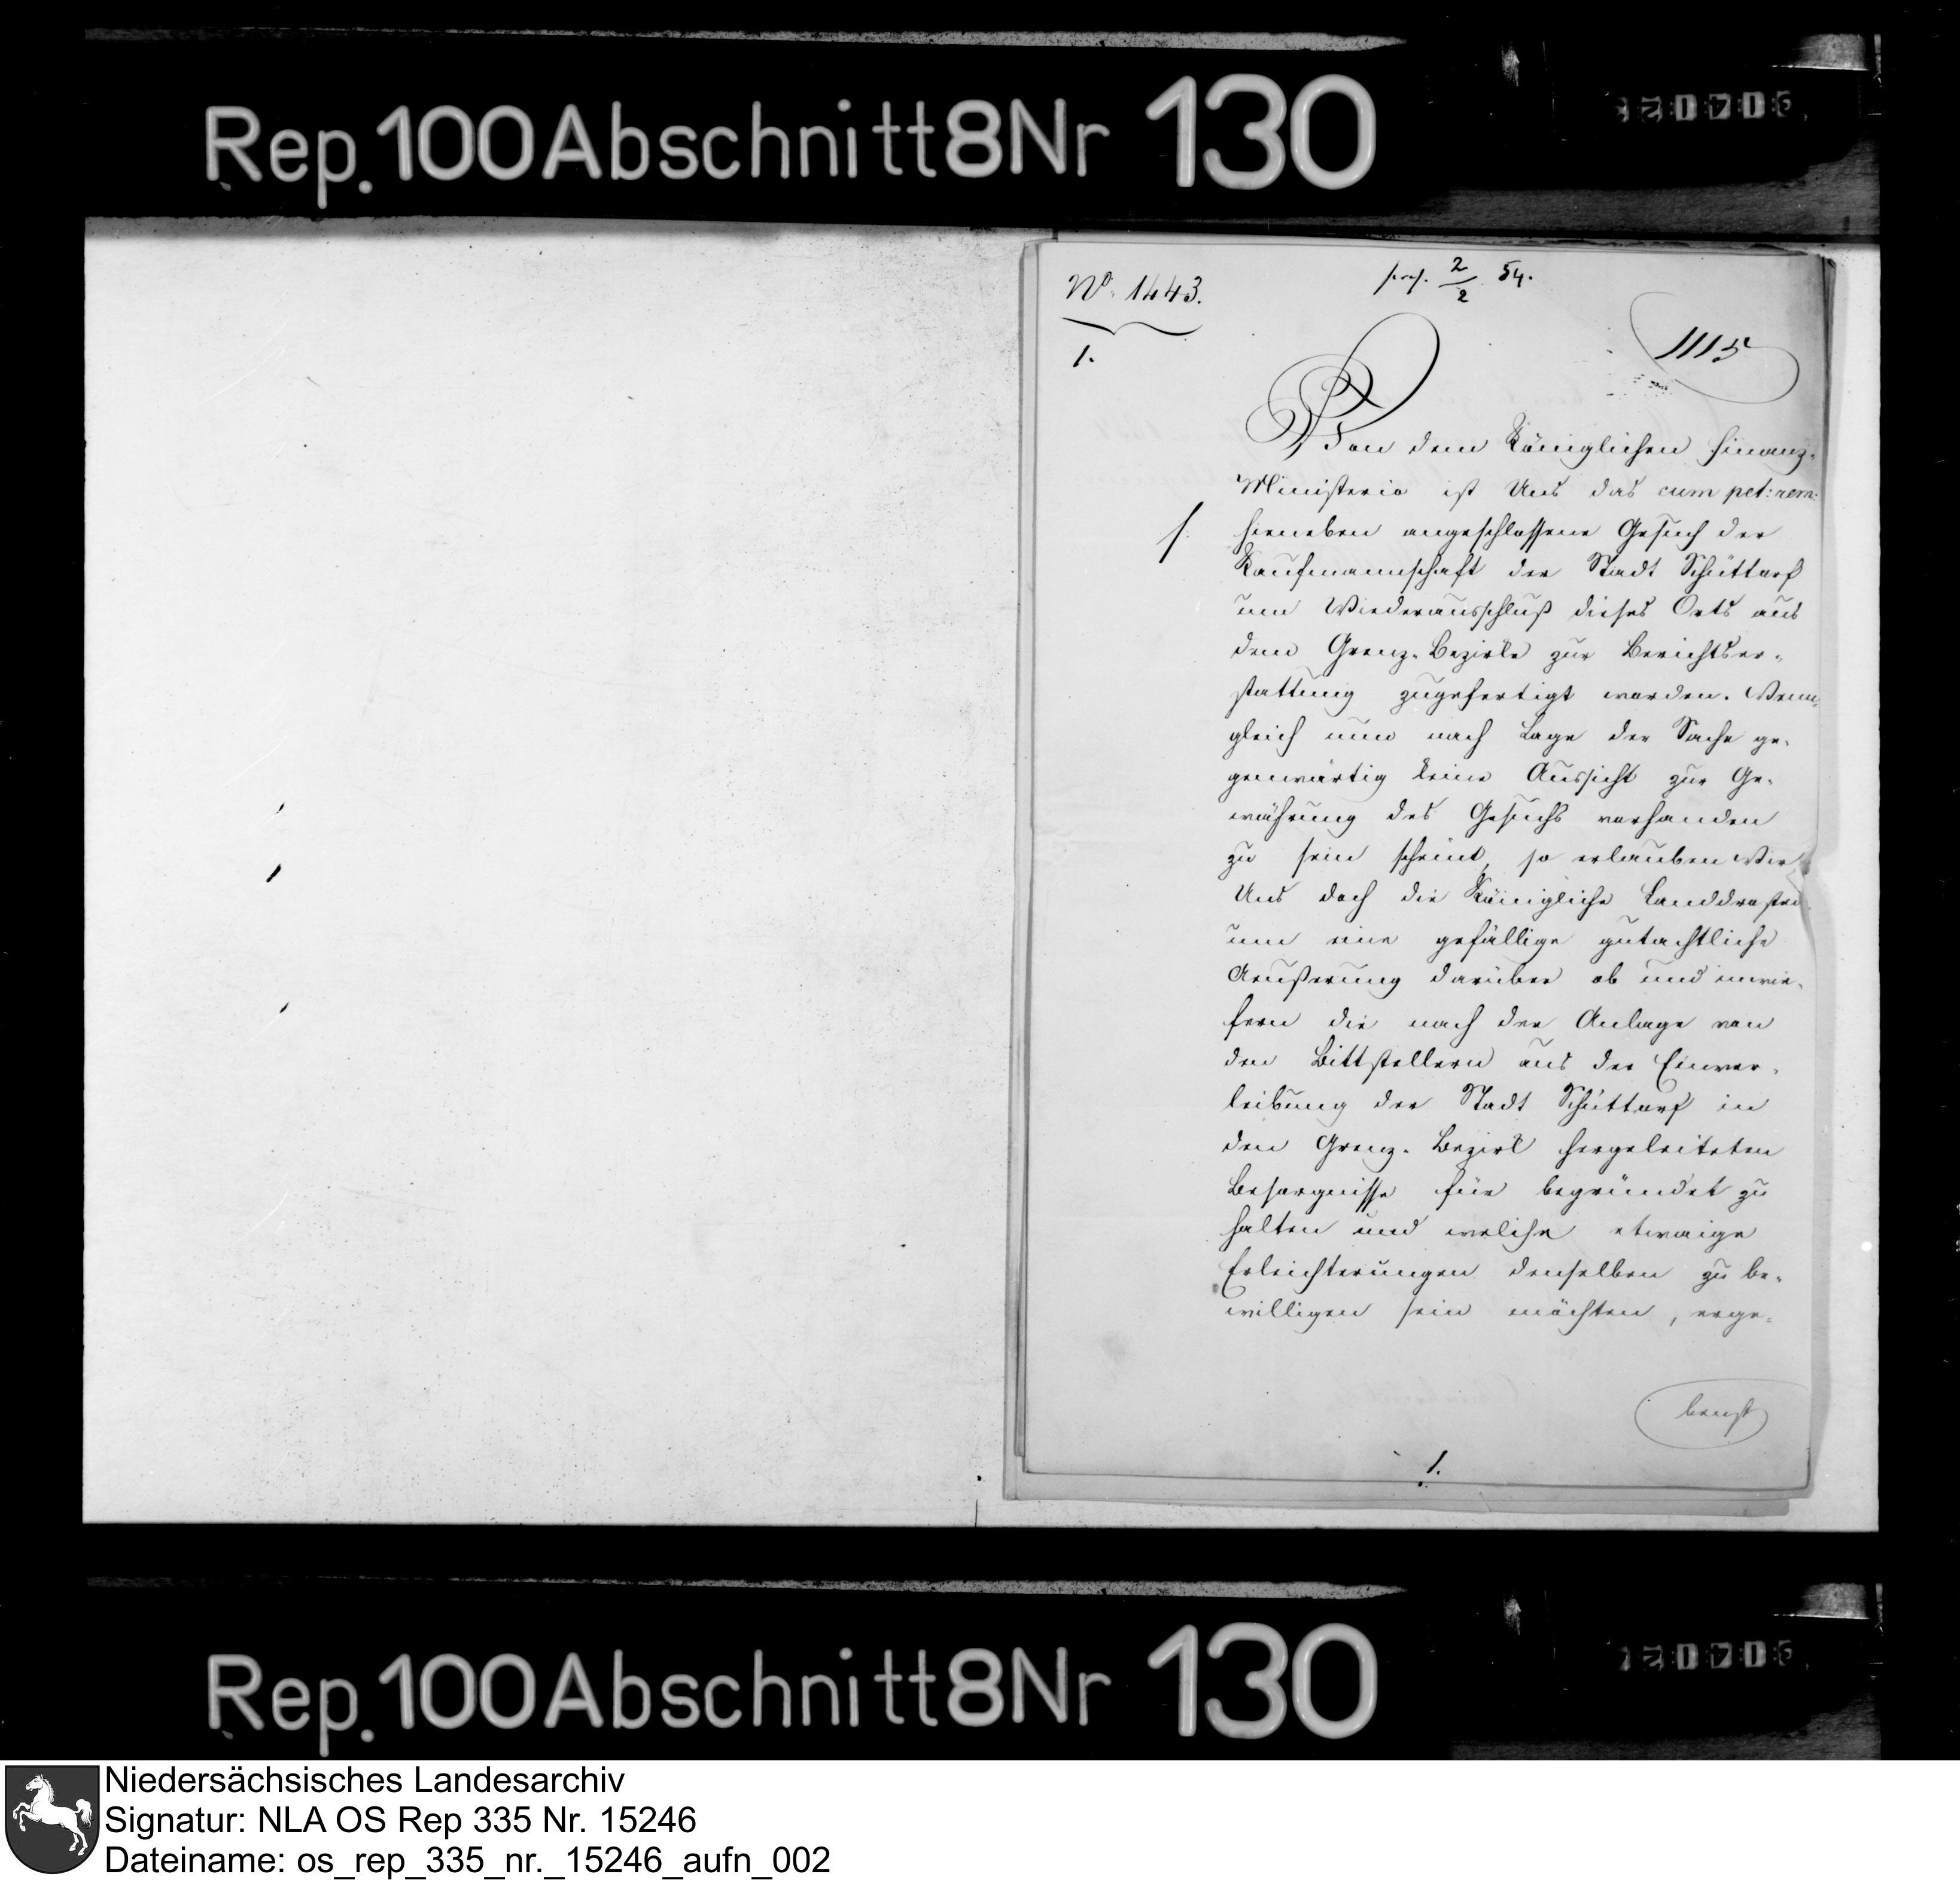 Rep. 100 Abschnitt 8 Nr 130
No. 1443.
1.
pras. 2/2 54.
1115
Von dem Königlichen Finanz-
Ministerio ist Uns das cum pet: rem:
hieneben angeschlossene Gesuch der
Kaufmannschaft der Stadt Schüttorf
um Wiederausschluß dieses Orts aus
dem Grenz-Bezirke zur Berichtser-
stattung zugefertigt worden. Wenn-
gleich nun nach Lage der Sache ge-
genwärtig keine Aussicht zur Ge-
währung des Gesuchs vorhanden
zu sein scheint, so erlauben Wir
Uns doch die Königliche Landdrostei
um eine gefällige gutachtliche
Aeußerung darüber ob und inwie-
fern die nach der Anlage von
den Bittstellern aus der Einver-
leibung der Stadt Schüttorf in
den Grenz-Bezirk hergeleiteten
Besorgnisse für begründet zu
halten und welche etwaige
Erleichterungen denselben zu be-
willigen sein möchten, erge-
benst
1.
Rep. 100 Abschnitt 8 Nr 130
Niedersächsisches Landesarchiv
Signatur: NLA OS Rep 335 Nr. 15246
Dateiname: os_rep_335_nr._15246_aufn_002